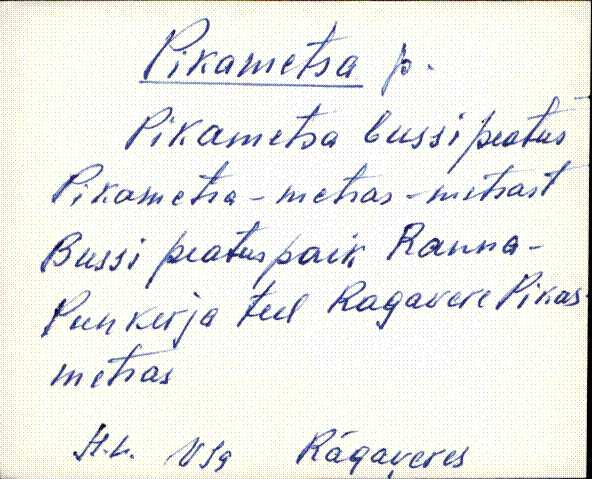 Pikametsa p.
Pikametsa bussipeatus
Pikametsa - metsas - metsast
Bussi peatuspaik Ranna-
Punkerja teel Ragavere Pikas-
metsas
Rägaveres